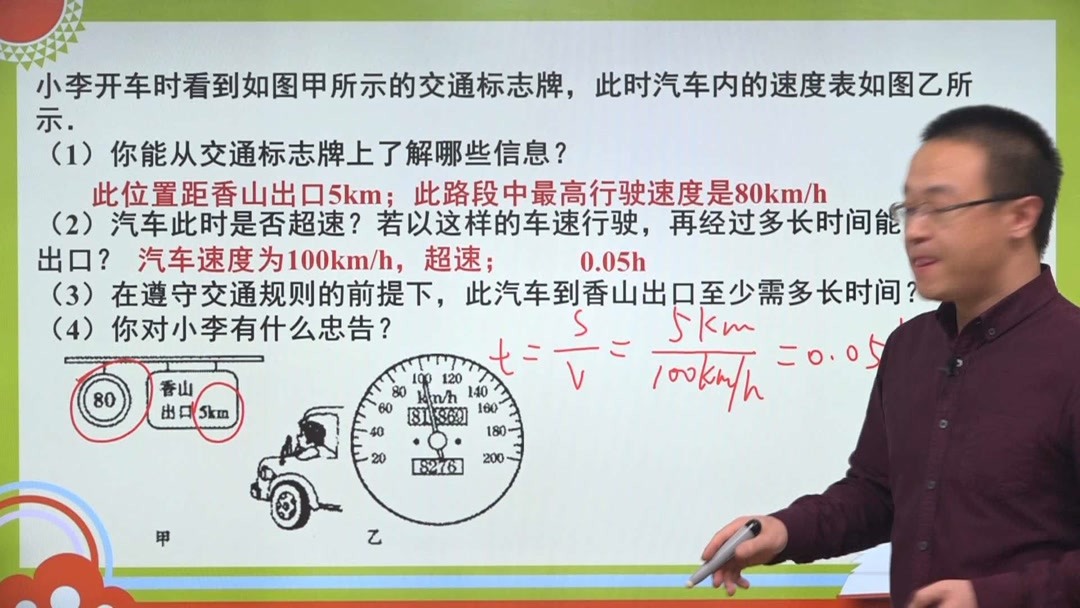 小李开车时看到如图甲所示的交通标志牌，此时汽车内的速度表如图乙所
示．
（1）你能从交通标志牌上了解哪些信息？
此位置距香山出口5km；此路段中最高行驶速度是80km/h
（2）汽车此时是否超速？若以这样的车速行驶，再经过多长时间能
出口？ 汽车速度为100km/h，超速； 0.05h
（3）在遵守交通规则的前提下，此汽车到香山出口至少需多长时间？
（4）你对小李有什么忠告？
t = S/V = 5km/100km/h = 0.05
80
香山
出口 5km
20 40 60 80 100 120 140 160 180 200
km/h
8276
甲
乙